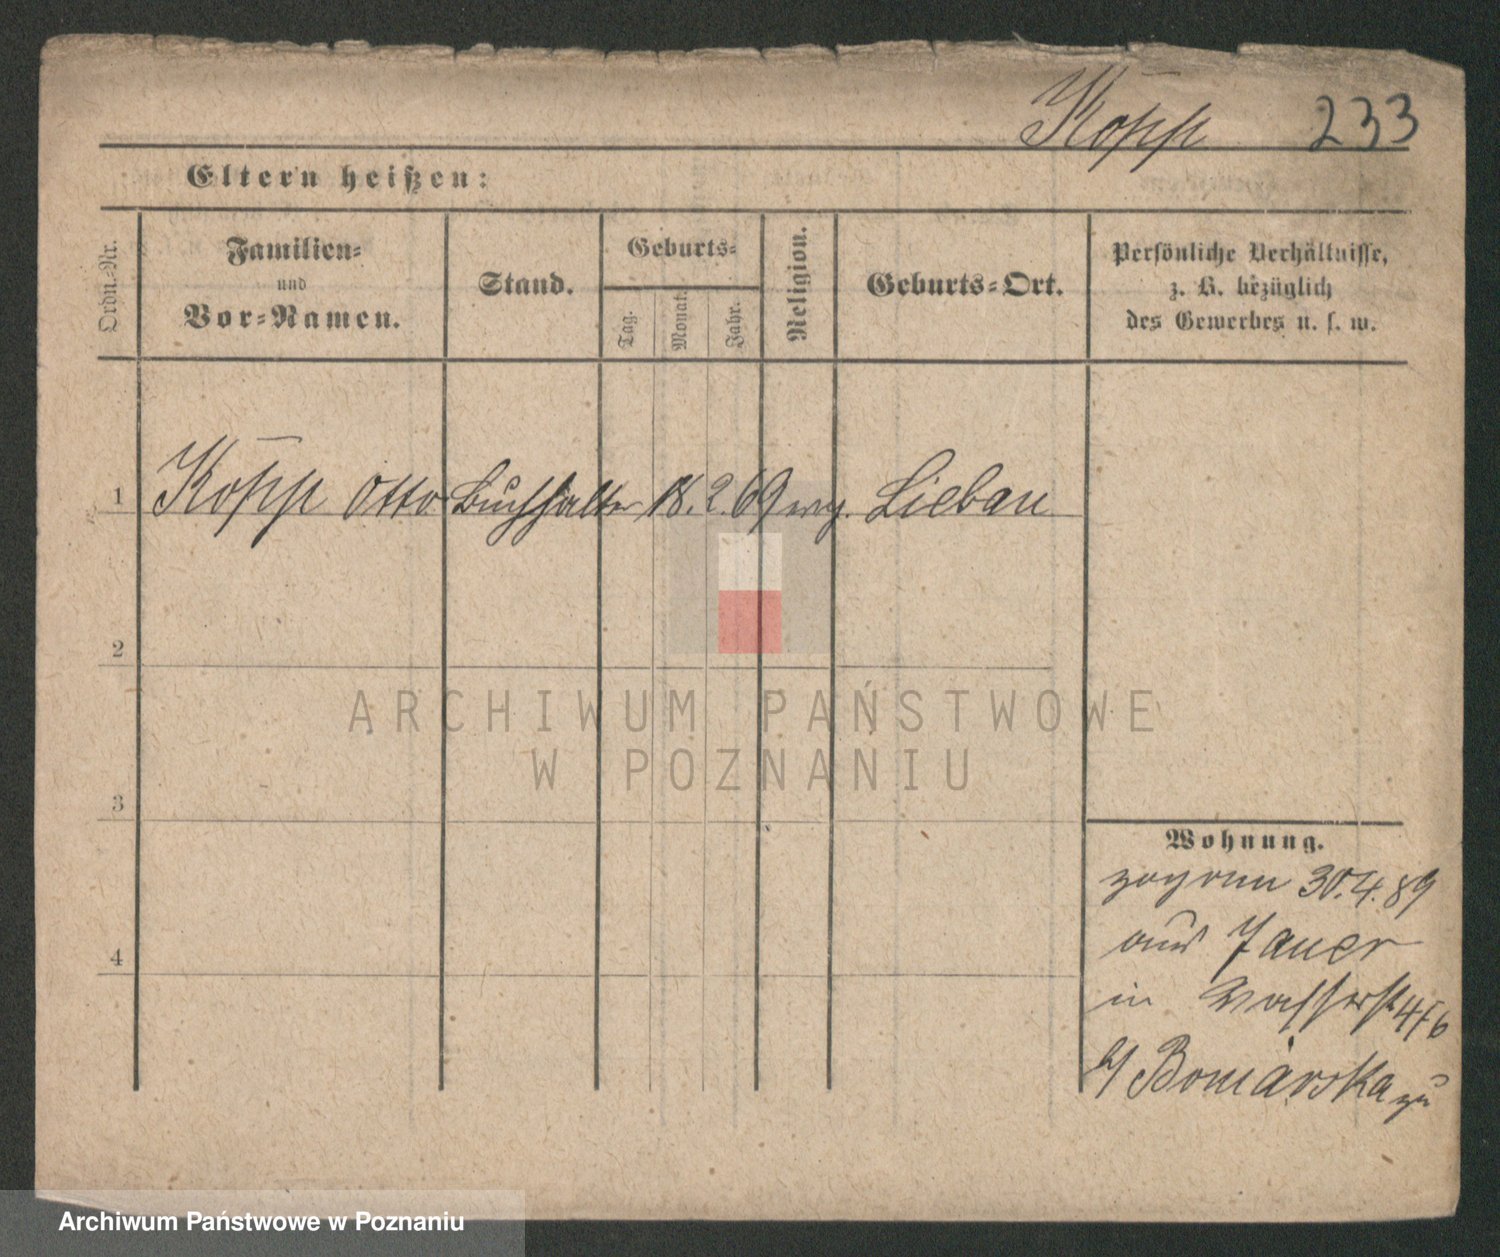 Kopp 233
Eltern heißen:
Ordn.-Nr.
Familien-
und
Vor-Namen.
Stand.
Geburts-
Tag.
Monat.
Jahr.
Religion.
Geburts-Ort.
Persönliche Verhältnisse,
z. B. bezüglich
des Gewerbes u. s. w.
1 Kopp Otto Buchhalter 18. 2. 69 evg. Liebau
2
3
4
Wohnung.
zog von 30.4.89
aus Jauer
in Wasserstr
b/ Bomarska zu
ARCHIWUM PAŃSTWOWE
W POZNANIU
Archiwum Państwowe w Poznaniu